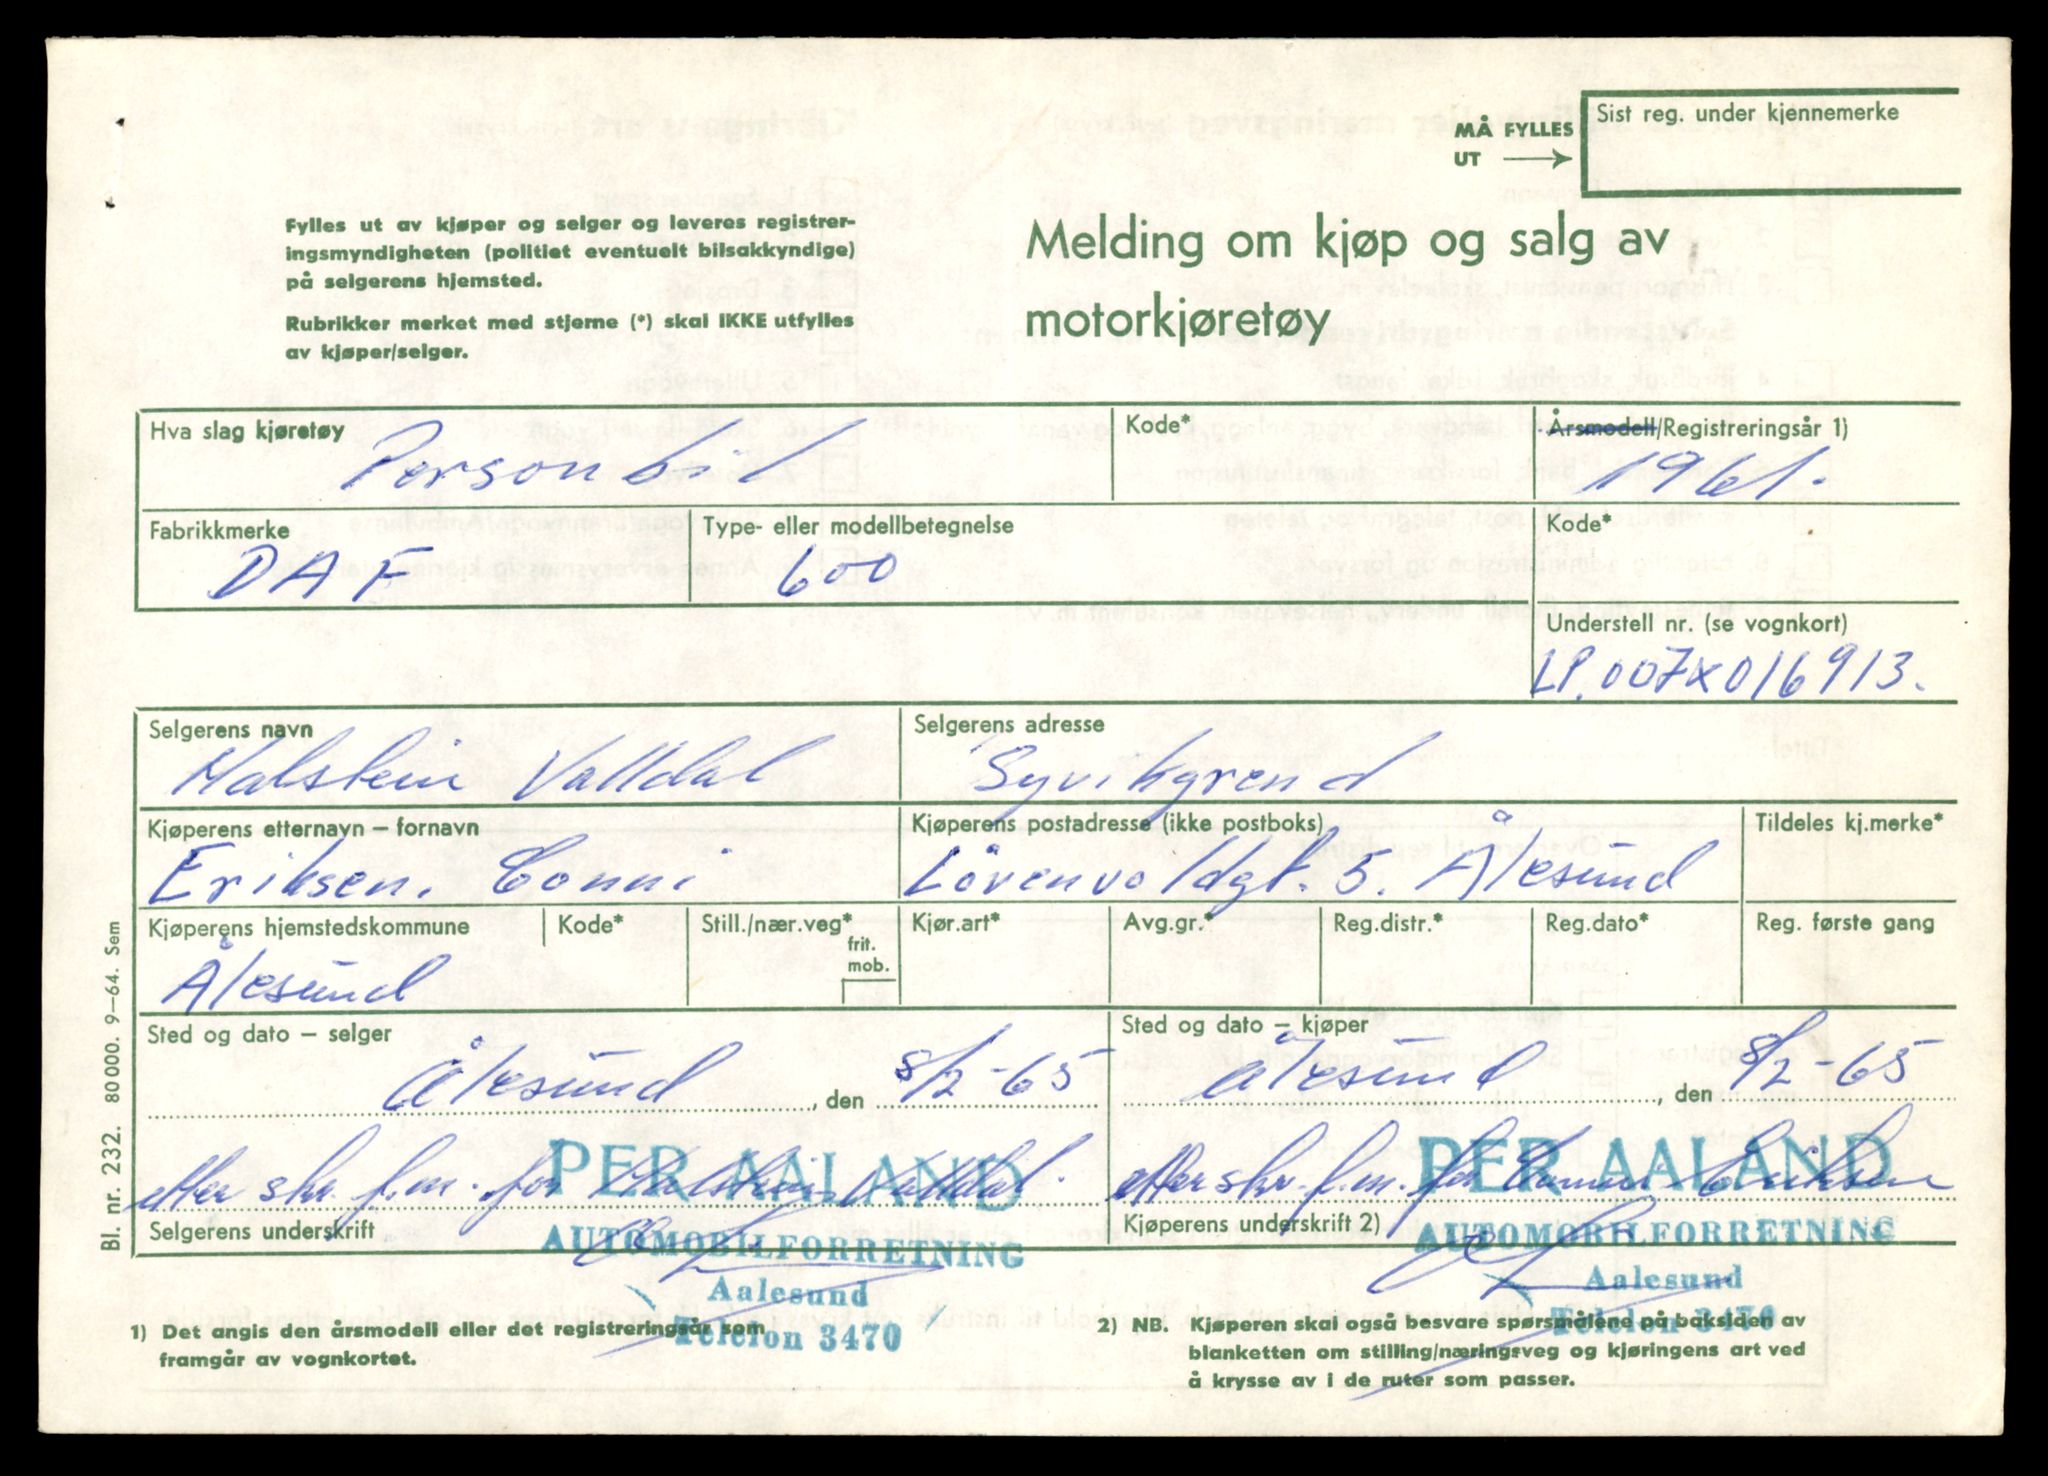 Sist reg. under kjennemerke
MÅ FYLLES
UT
Fylles ut av kjøper og selger og leveres registrer-
ingsmyndigheten (politiet eventuelt bilsakkyndige)
på selgerens hjemsted.
Rubrikker merket med stjerne (*) skal IKKE utfylles
av kjøper/selger.
Melding om kjøp og salg av
motorkjøretøy
Hva slag kjøretøy
Personbil
Kode*
Årsmodell/Registreringsår 1)
1961.
Fabrikkmerke
DAF
Type- eller modellbetegnelse
600
Kode*
Understell nr. (se vognkort)
LP.007X016913.
Selgerens navn
Halstein Valldal
Selgerens adresse
Syvikgrend
Kjøperens etternavn – fornavn
Eriksen, Conni
Kjøperens postadresse (ikke postboks)
Lövenvoldgt. 5. Ålesund
Tildeles kj.merke*
Kjøperens hjemstedskommune
Ålesund
Kode*
Still./nær.veg*
frit.
mob.
Kjør.art*
Avg.gr.*
Reg.distr.*
Reg.dato*
Reg. første gang
Sted og dato – selger
Ålesund, den 8/2-65
Sted og dato – kjøper
Ålesund, den 8/2-65
etter skr. f.m. for Halstein Valldal.
PER AALAND
AUTOMOBILFORRETNING
Aalesund
Telefon 3470
Selgerens underskrift
etter skr. f.m. for Conni Eriksen
PER AALAND
AUTOMOBILFORRETNING
Aalesund
Telefon 3470
Kjøperens underskrift 2)
1) Det angis den årsmodell eller det registreringsår som
framgår av vognkortet.
2) NB. Kjøperen skal også besvare spørsmålene på baksiden av
blanketten om stilling/næringsveg og kjøringens art ved
å krysse av i de ruter som passer.
Bl. nr. 232. 80 000. 9–64. Sem